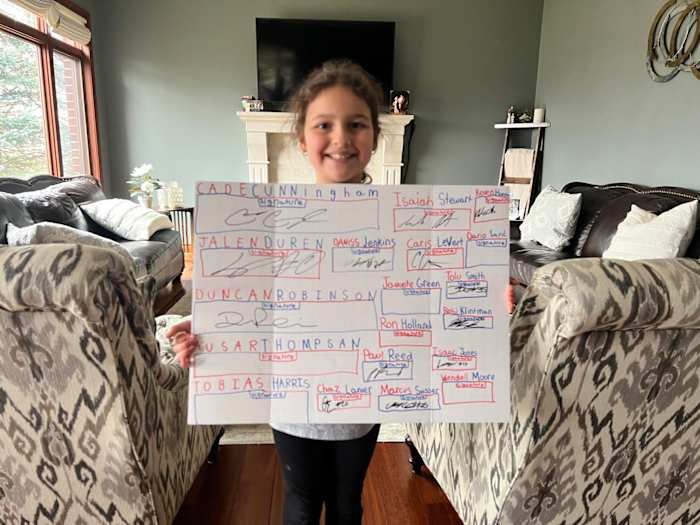 CADE CUNNINGHAM
signature
Isaiah Stewart
signature
signature
JALEN DUREN
signature
DANISS Jenkins
signature
Caris LeVert
signature
Dario
signature
DUNCAN ROBINSON
signature
Javonte Green
signature
Tolu Smith
signature
Ron Holland
signature
Bobi Klintman
signature
AUSAR THOMPSAN
signature
Paul Reed
signature
Isaac Jones
signature
TOBIAS HARRIS
signature
Chaz Lanier
signature
Marcus Sasser
signature
Wendell Moore
signature